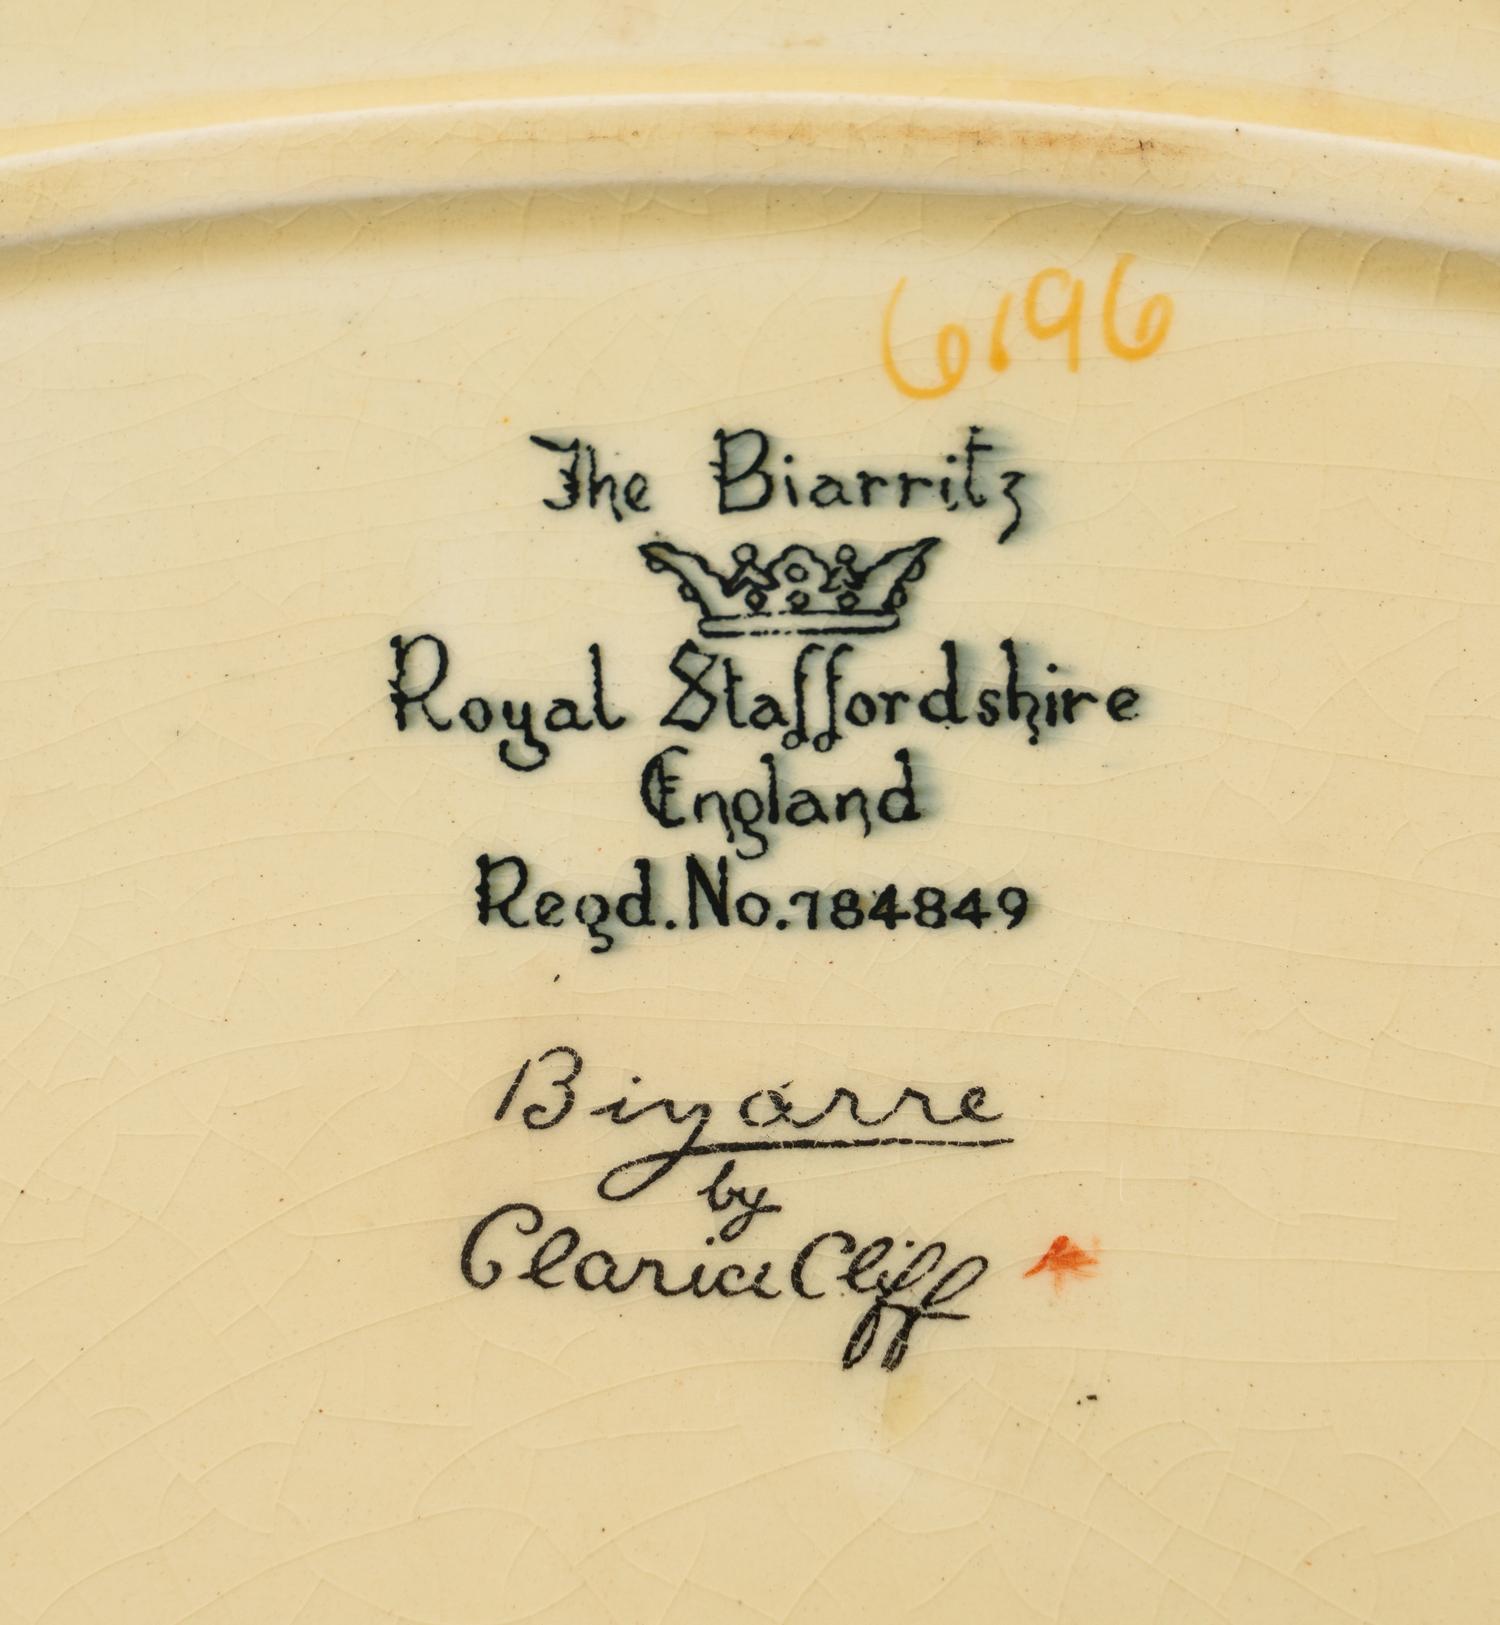 6196
The Biarritz
Royal Staffordshire
England
Regd. No. 784849
Bizarre
by
Clarice Cliff